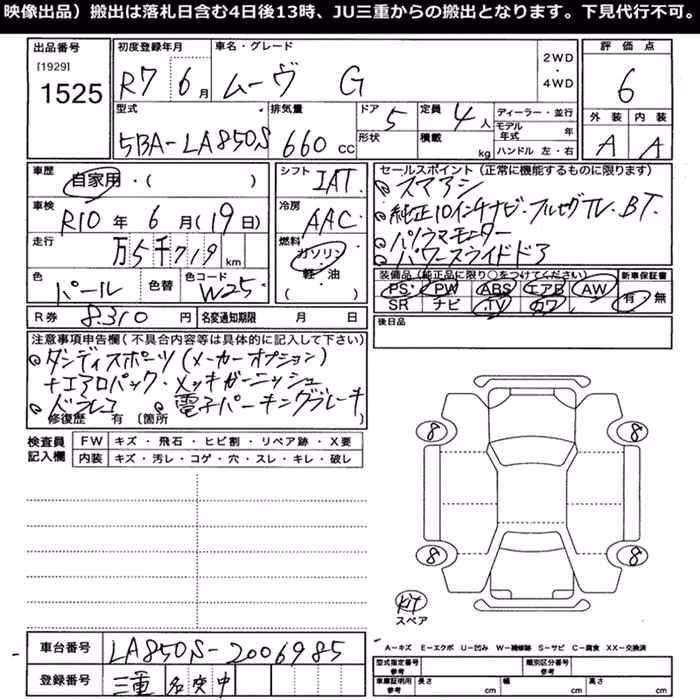 映像出品）搬出は落札日含む4日後13時、JU三重からの搬出となります。下見代行不可。
出品番号 [1929] 1525
初度登録年月 R7 6月
車名・グレード ムーヴ G
2WD・4WD
評価点 6
外装 A 内装 A
型式 5BA-LA850S
排気量 660cc
ドア 5
形状
定員 4人
積載 kg
ディーラー・並行
モデル年式 年
ハンドル 左・右
車歴 自家用・( )
車検 R10年6月(19日)
走行 万5千719km
色 パール 色替 色コード W25
シフト IAT
冷房 AAC
燃料 ガソリン・軽・油 ( )
セールスポイント（正常に機能するものに限ります）
スマアシ
純正10インチナビ・フルセグTV・BT・
パノラマモニター
パワースライドドア
装備品（純正品に限り○をつけてください）
PS PW ABS エアB AW
SR ナビ TV カワ
新車保証書 有・無
R券 8.310円
名変通知期限 月 日
後日品
注意事項申告欄（不具合内容等は具体的に記入して下さい）
ダンディスポーツ(メーカーオプション)
+エアロパック・メッキガーニッシュ
ドラレコ 電子パーキングブレーキ
修復歴 有〔箇所
検査員記入欄
FW キズ・飛石・ヒビ割・リペア跡・X要
内装 キズ・汚レ・コゲ・穴・スレ・キレ・破レ
8 8
8 8
スペア
車台番号 LA850S-2006985
登録番号 三重
A－キズ E－エクボ U－凹み W－補修跡 S－サビ C－腐食 XX－交換済
型式指定番号 参考 類別区分番号 参考
車庫証明用 参考 長さ cm 幅 cm 高さ cm